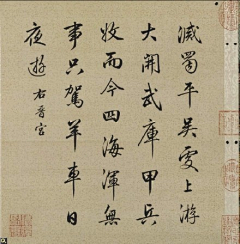 滅蜀平吳上游
大開武庫甲兵
收而今四海渾無
事只駕羊車日
夜遊 右晉宮